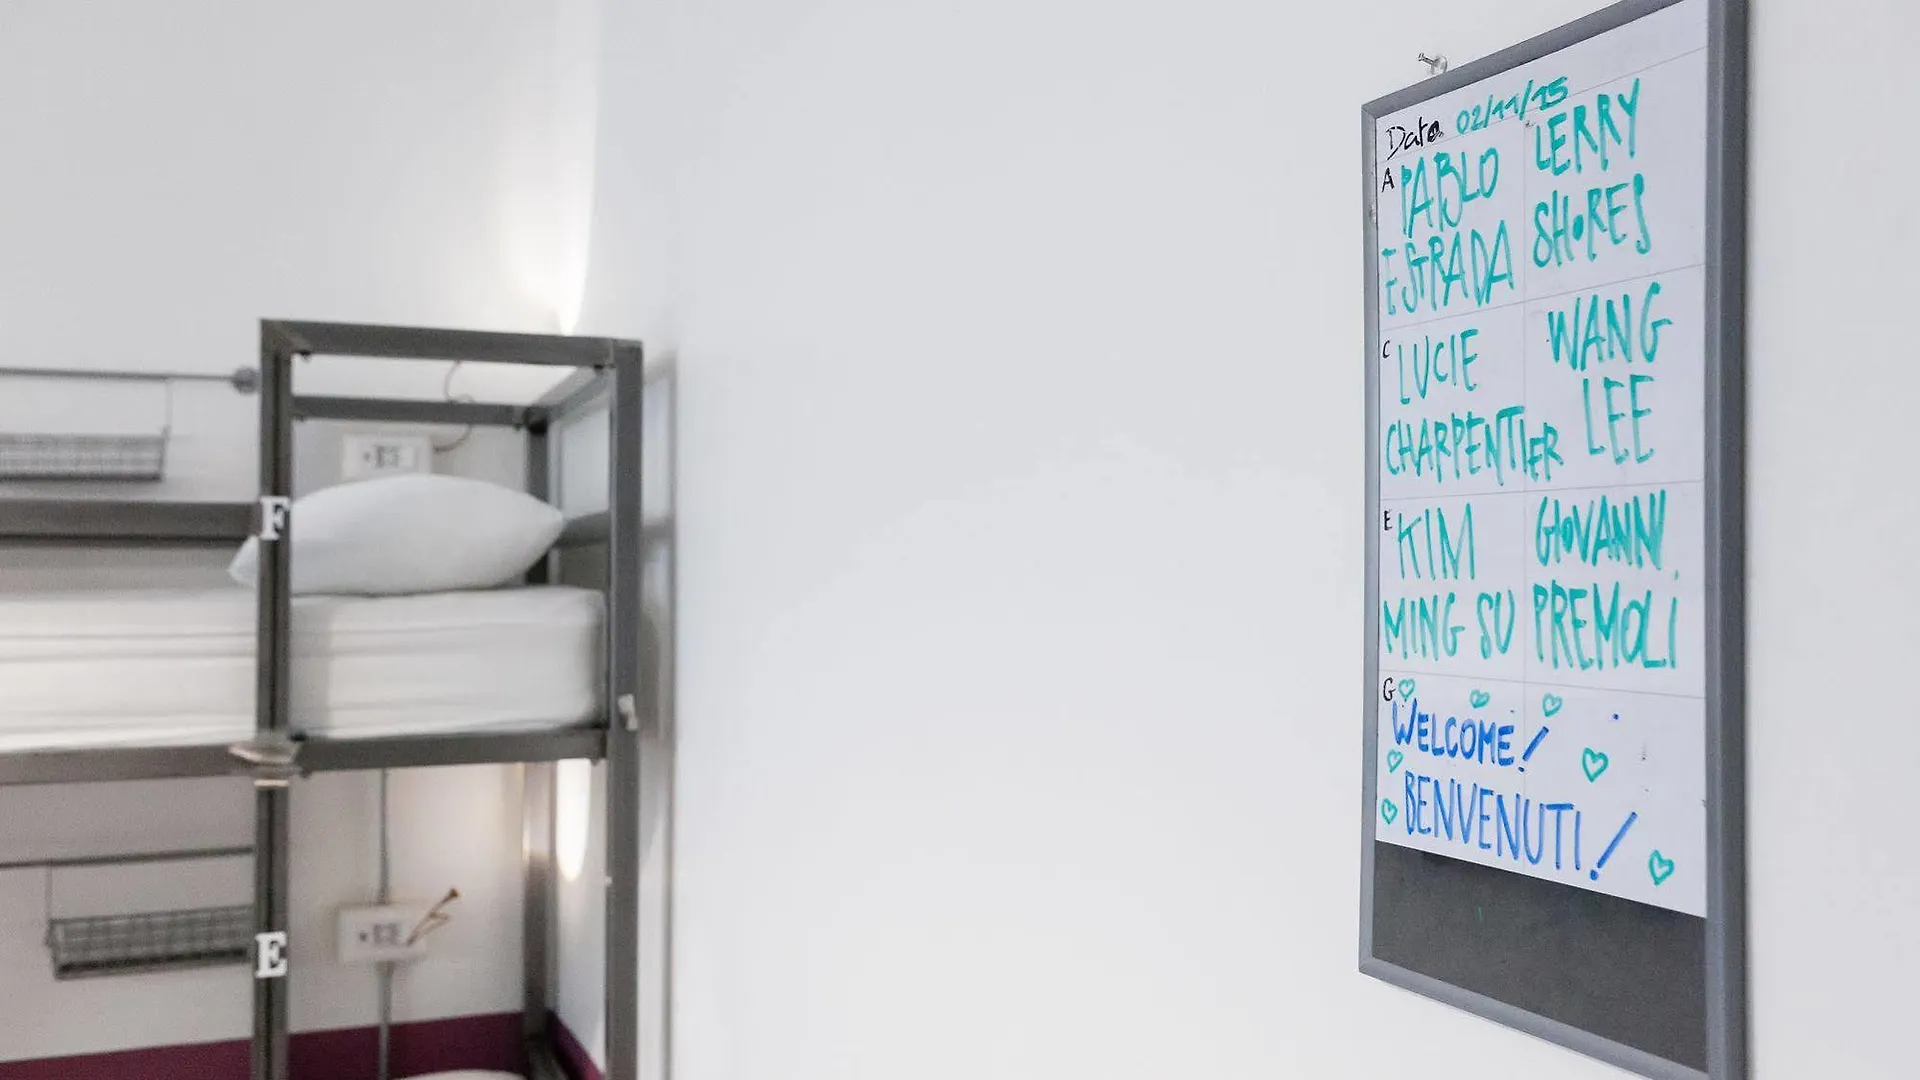 Date 02/11/15
A PABLO
ESTRADA
LERRY
SHORES
C LUCIE
CHARPENTIER
WANG
LEE
E KIM
MING SU
GIOVANNI
PREMOLI
G
WELCOME!
BENVENUTI!
F
E